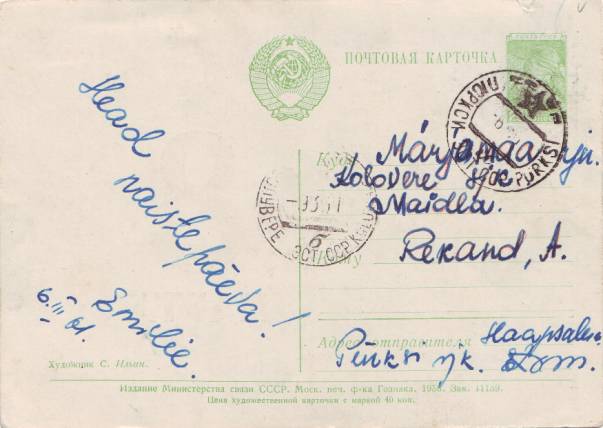 ПОЧТОВАЯ КАРТОЧКА
Head
naistepäeva!
Emilie.
6. III 61.
Куда
Märjamaa rjn.
Kolovere s/k
Maidla.
Кому
Rekand, A.
Адрес отправителя
Haapsalu
ЭСТ/ССР
-9 3 61
б
Художник С. Ильин.
Издание Министерства связи СССР. Моск. печ. ф-ка Гознака. 1958. Зак. 11159.
Цена художественной карточки с маркой 40 коп.